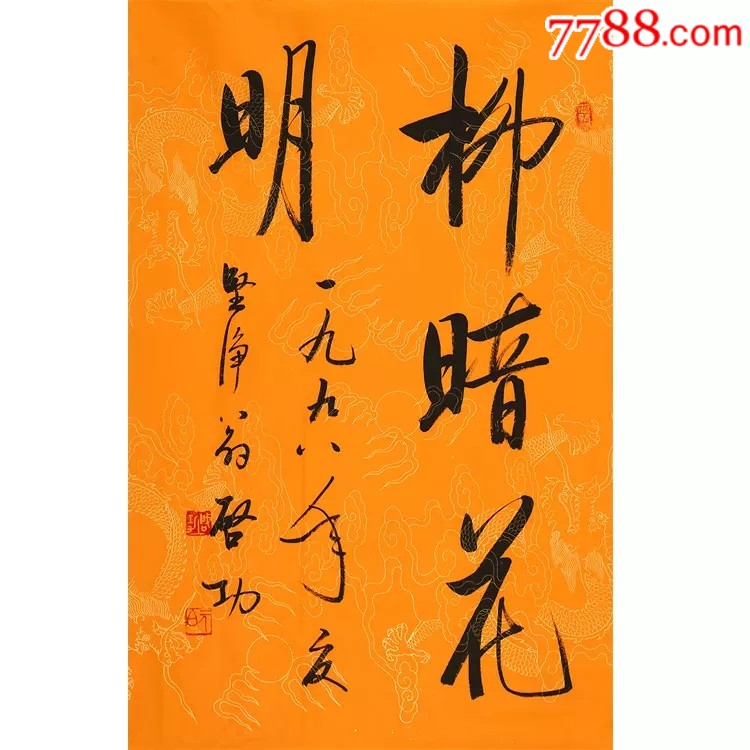 7788.com
柳暗花
明
一九九八年夏
坚净翁启功